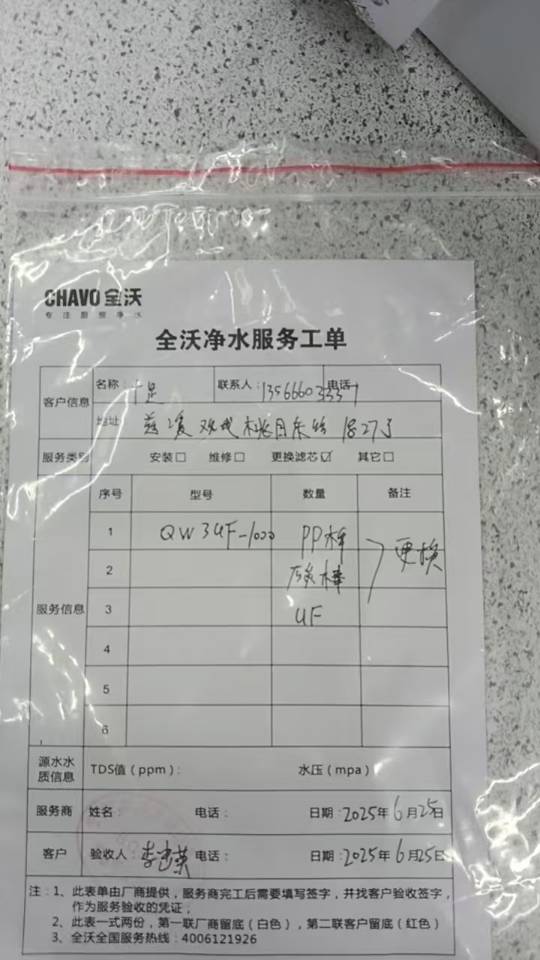 CHAVO 全沃
专注厨房净水
全沃净水服务工单
客户信息
名称 十足 联系人: 电话
地址
服务类别 安装□ 维修□ 更换滤芯☑ 其它□
服务信息
序号 型号 数量 备注
1 QW3UF-1000 PP棒 更换
2
3 UF
4
5
6
源水水质信息 TDS值(ppm): 水压(mpa)
服务商 姓名: 电话: 日期:2025年6月25日
客户 验收人: 电话: 日期:2025年6月25日
注:1、此表单由厂商提供,服务商完工后需要填写签字,并找客户验收签字,
作为服务验收的凭证;
2、此表一式两份,第一联厂商留底(白色),第二联客户留底(红色)
3、全沃全国服务热线:4006121926